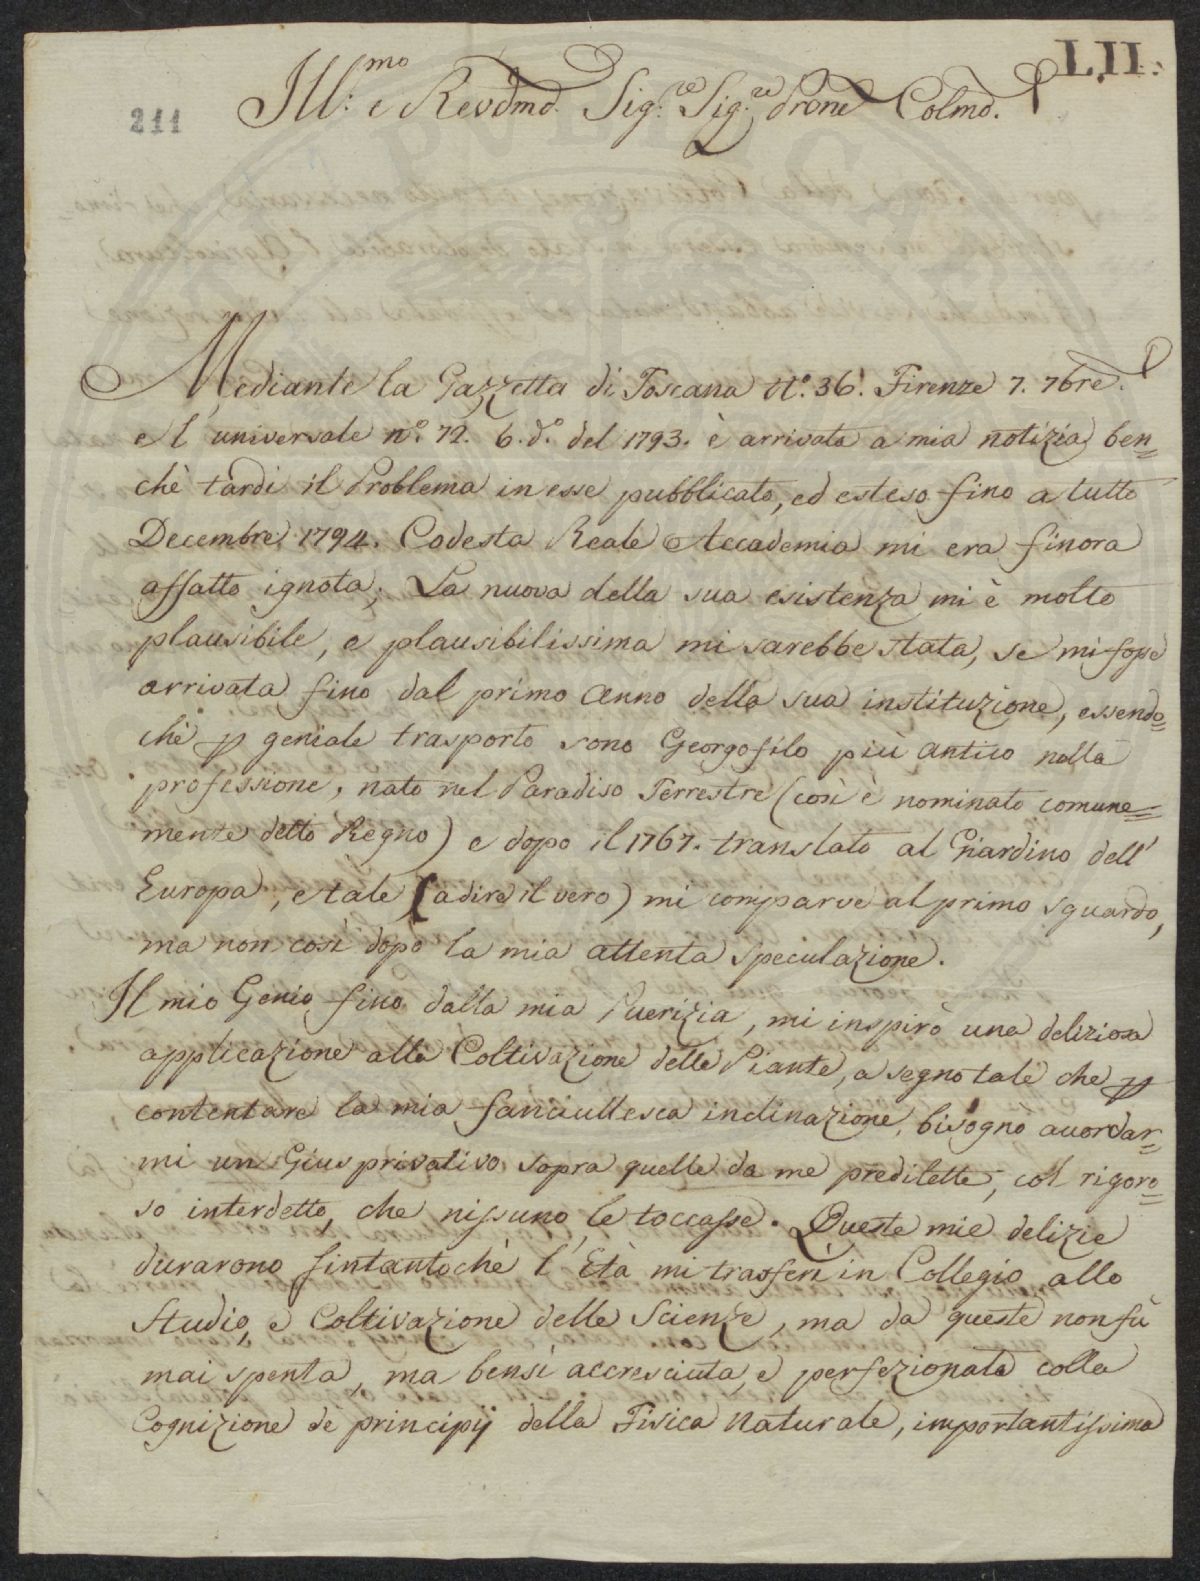 LII.
211
Ill:mo e Revdmo. Sig.re Sig.re Prone Colmo.
Mediante la Gazzetta di Toscana N.º 36. Firenze 7. 7bre.
e l'universale nº. 72. 6. d.º del 1793. è arrivato a mia notizia ben=
chè tardi il Problema in esse pubblicato, ed esteso fino a tutto
Decembre 1794. Codesta Reale Accademia mi era finora
affatto ignota; La nuova della sua esistenza mi è molto
plausibile, e plausibilissima mi sarebbe stata, se mi fosse
arrivata fino dal primo Anno della sua instituzione, essendo=
chè p geniale trasporto sono Georgofilo più antico nella
professione, nato nel Paradiso Terrestre (così è nominato comune=
mente detto Regno) e dopo il 1767. translato al Giardino dell'
Europa, e tale (a dire il vero) mi comparve al primo sguardo,
ma non così dopo la mia attenta speculazione.
Il mio Genio fino dalla mia Puerizia, mi inspirò una deliziosa
applicazione alla Coltivazione delle Piante, a segno tale che p
contentare la mia fanciullesca inclinazione, bisogno accordar=
mi un Gius privativo sopra quelle da me predilette, col rigoro=
so interdetto, che nissuno le toccasse. Queste mie delizie
durarono fintantochè l'Età mi trasferì in Collegio allo
Studio, e Coltivazione delle Scienze, ma da queste non fù
mai spenta, ma bensì accresciuta, e perfezionata colla
Cognizione dè principij della Fisica Naturale, importantissima